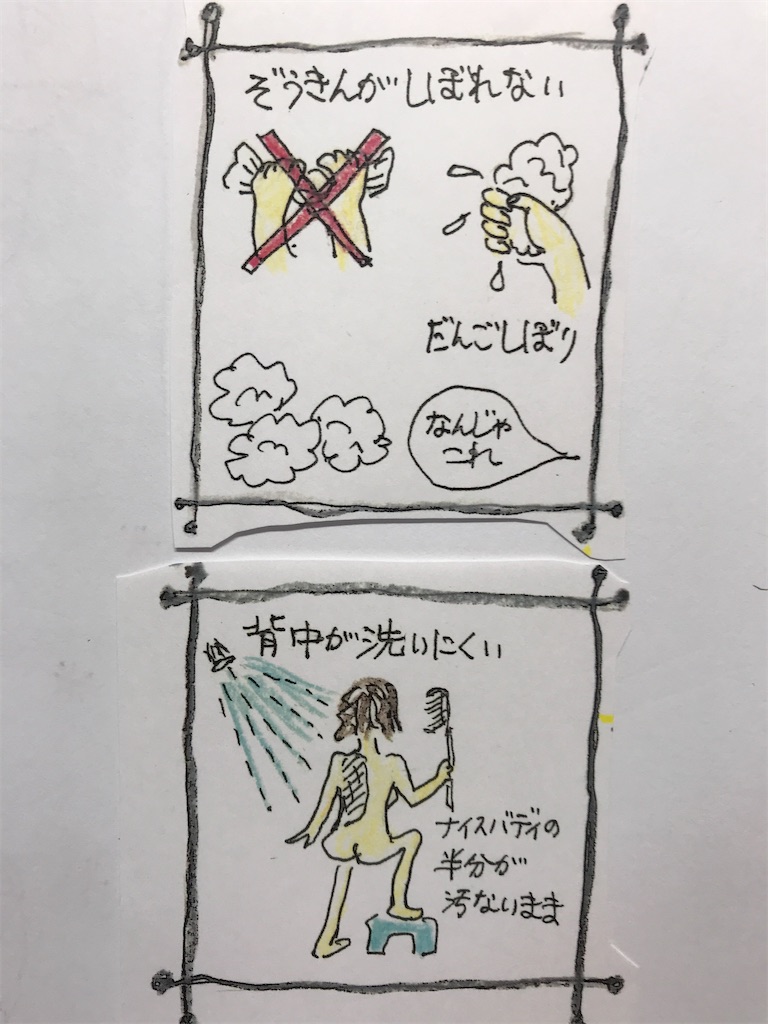 ぞうきんがしぼれない
だんごしぼり
なんじゃ
これ
背中が洗いにくい
ナイスバディの
半分が
汚ないまま